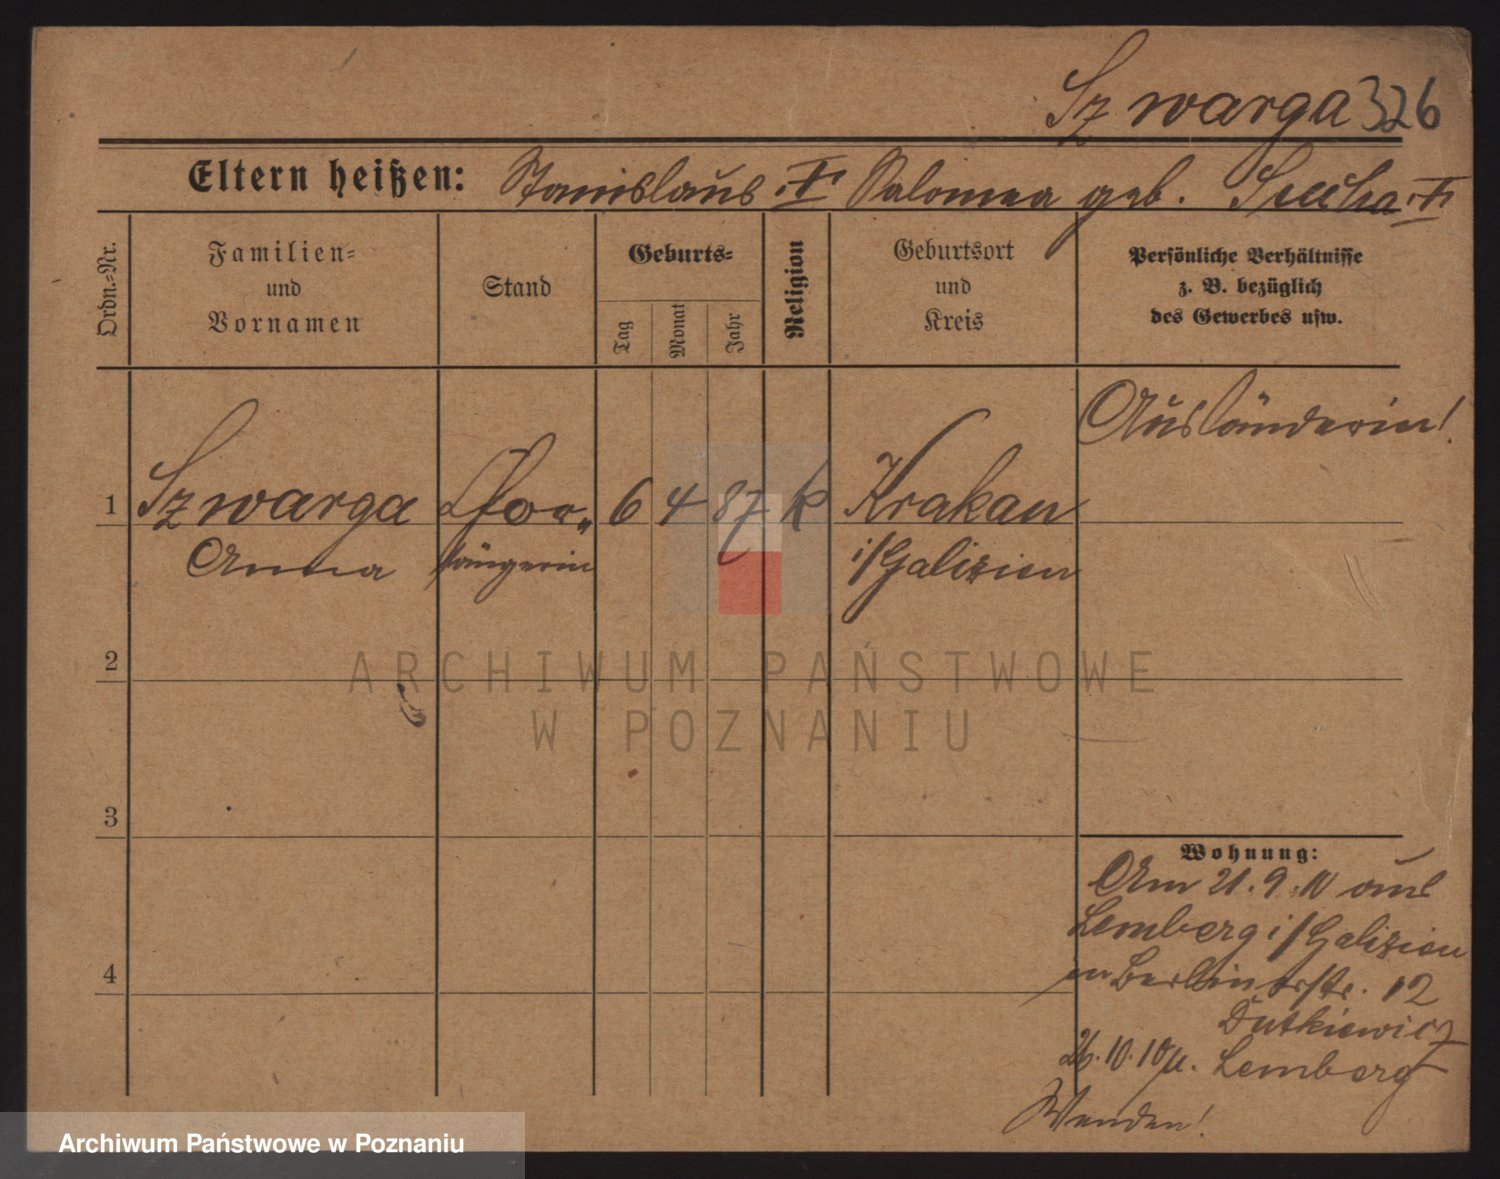 Szwarga 326
Eltern heißen: Stanislaus † Salomea geb. Sucha †
Ordn.-Nr.
Familien-
und
Vornamen
Stand
Geburts-
Tag
Monat
Jahr
Religion
Geburtsort
und
Kreis
Persönliche Verhältnisse
z. B. bezüglich
des Gewerbes usw.
Ausländerin!
1 Szwarga Chor- 6 4 87 k Krakau
Anna sängerin i/Galizien
2
3
4
Wohnung:
Am 21.9.10 aus
Lemberg i/Galizien
in Berlinerstr. 12
Dutkiewicz
26.10.10 Lemberg
Wenden!
ARCHIWUM PAŃSTWOWE
W POZNANIU
Archiwum Państwowe w Poznaniu